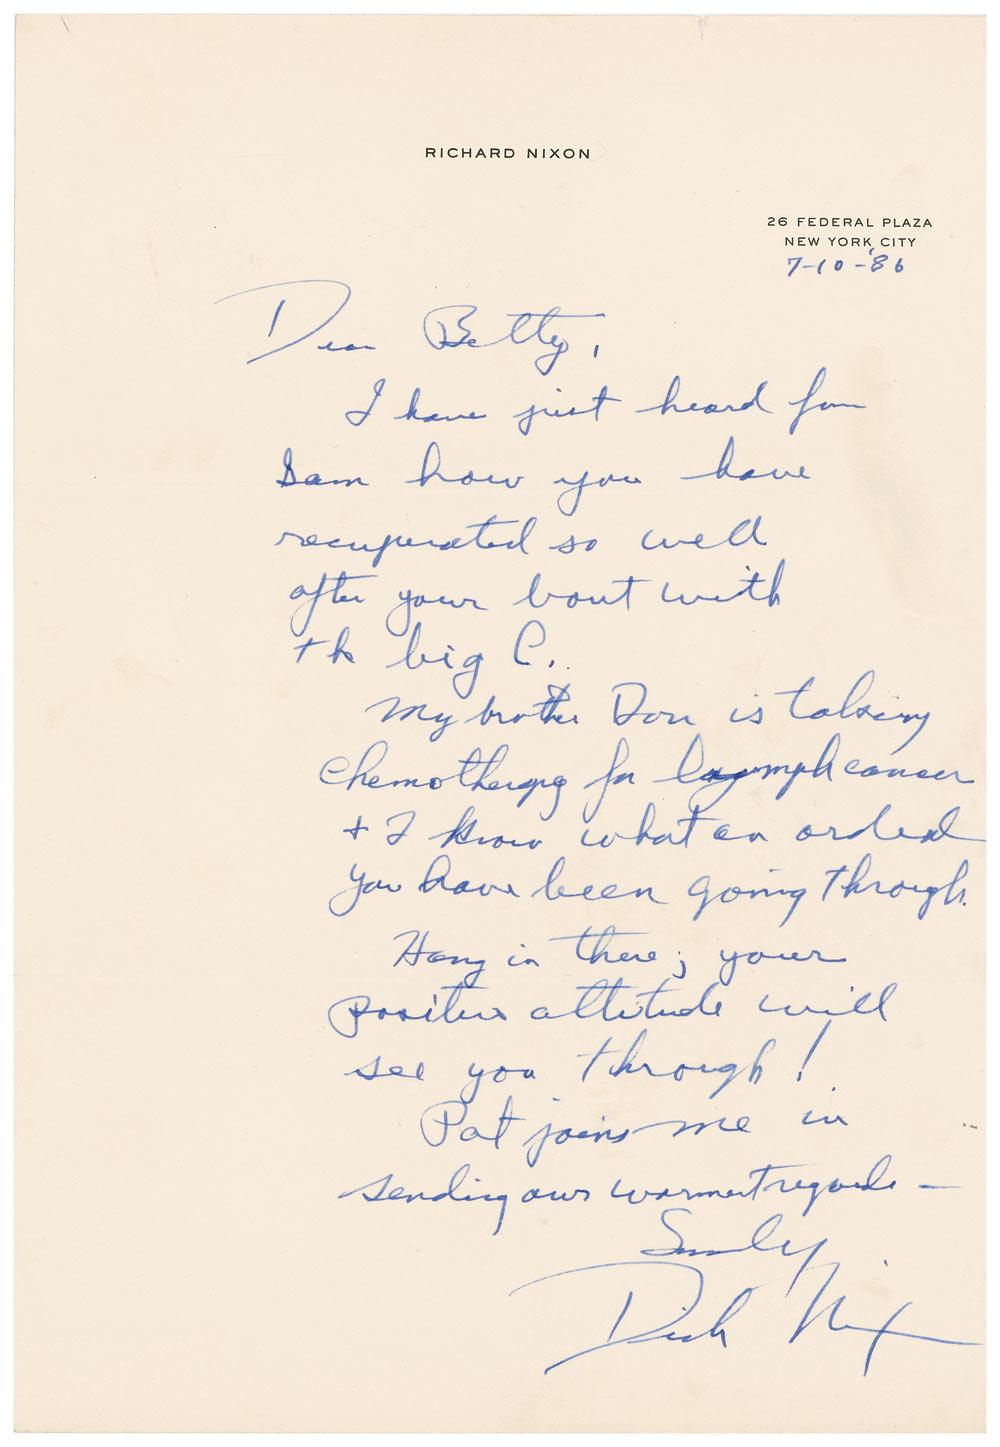 RICHARD NIXON
26 FEDERAL PLAZA
NEW YORK CITY
7-10-'86
Dear Betty,
I have just heard from
Sam how you have
recuperated so well
after your bout with
the big C.
My brother Don is taking
chemotherapy for lymph cancer
+ I know what an ordeal
you have been going through.
Hang in there; your
positive attitude will
see you through!
Pat joins me in
sending our warmest regards —
Sincerely
Dick Nixon